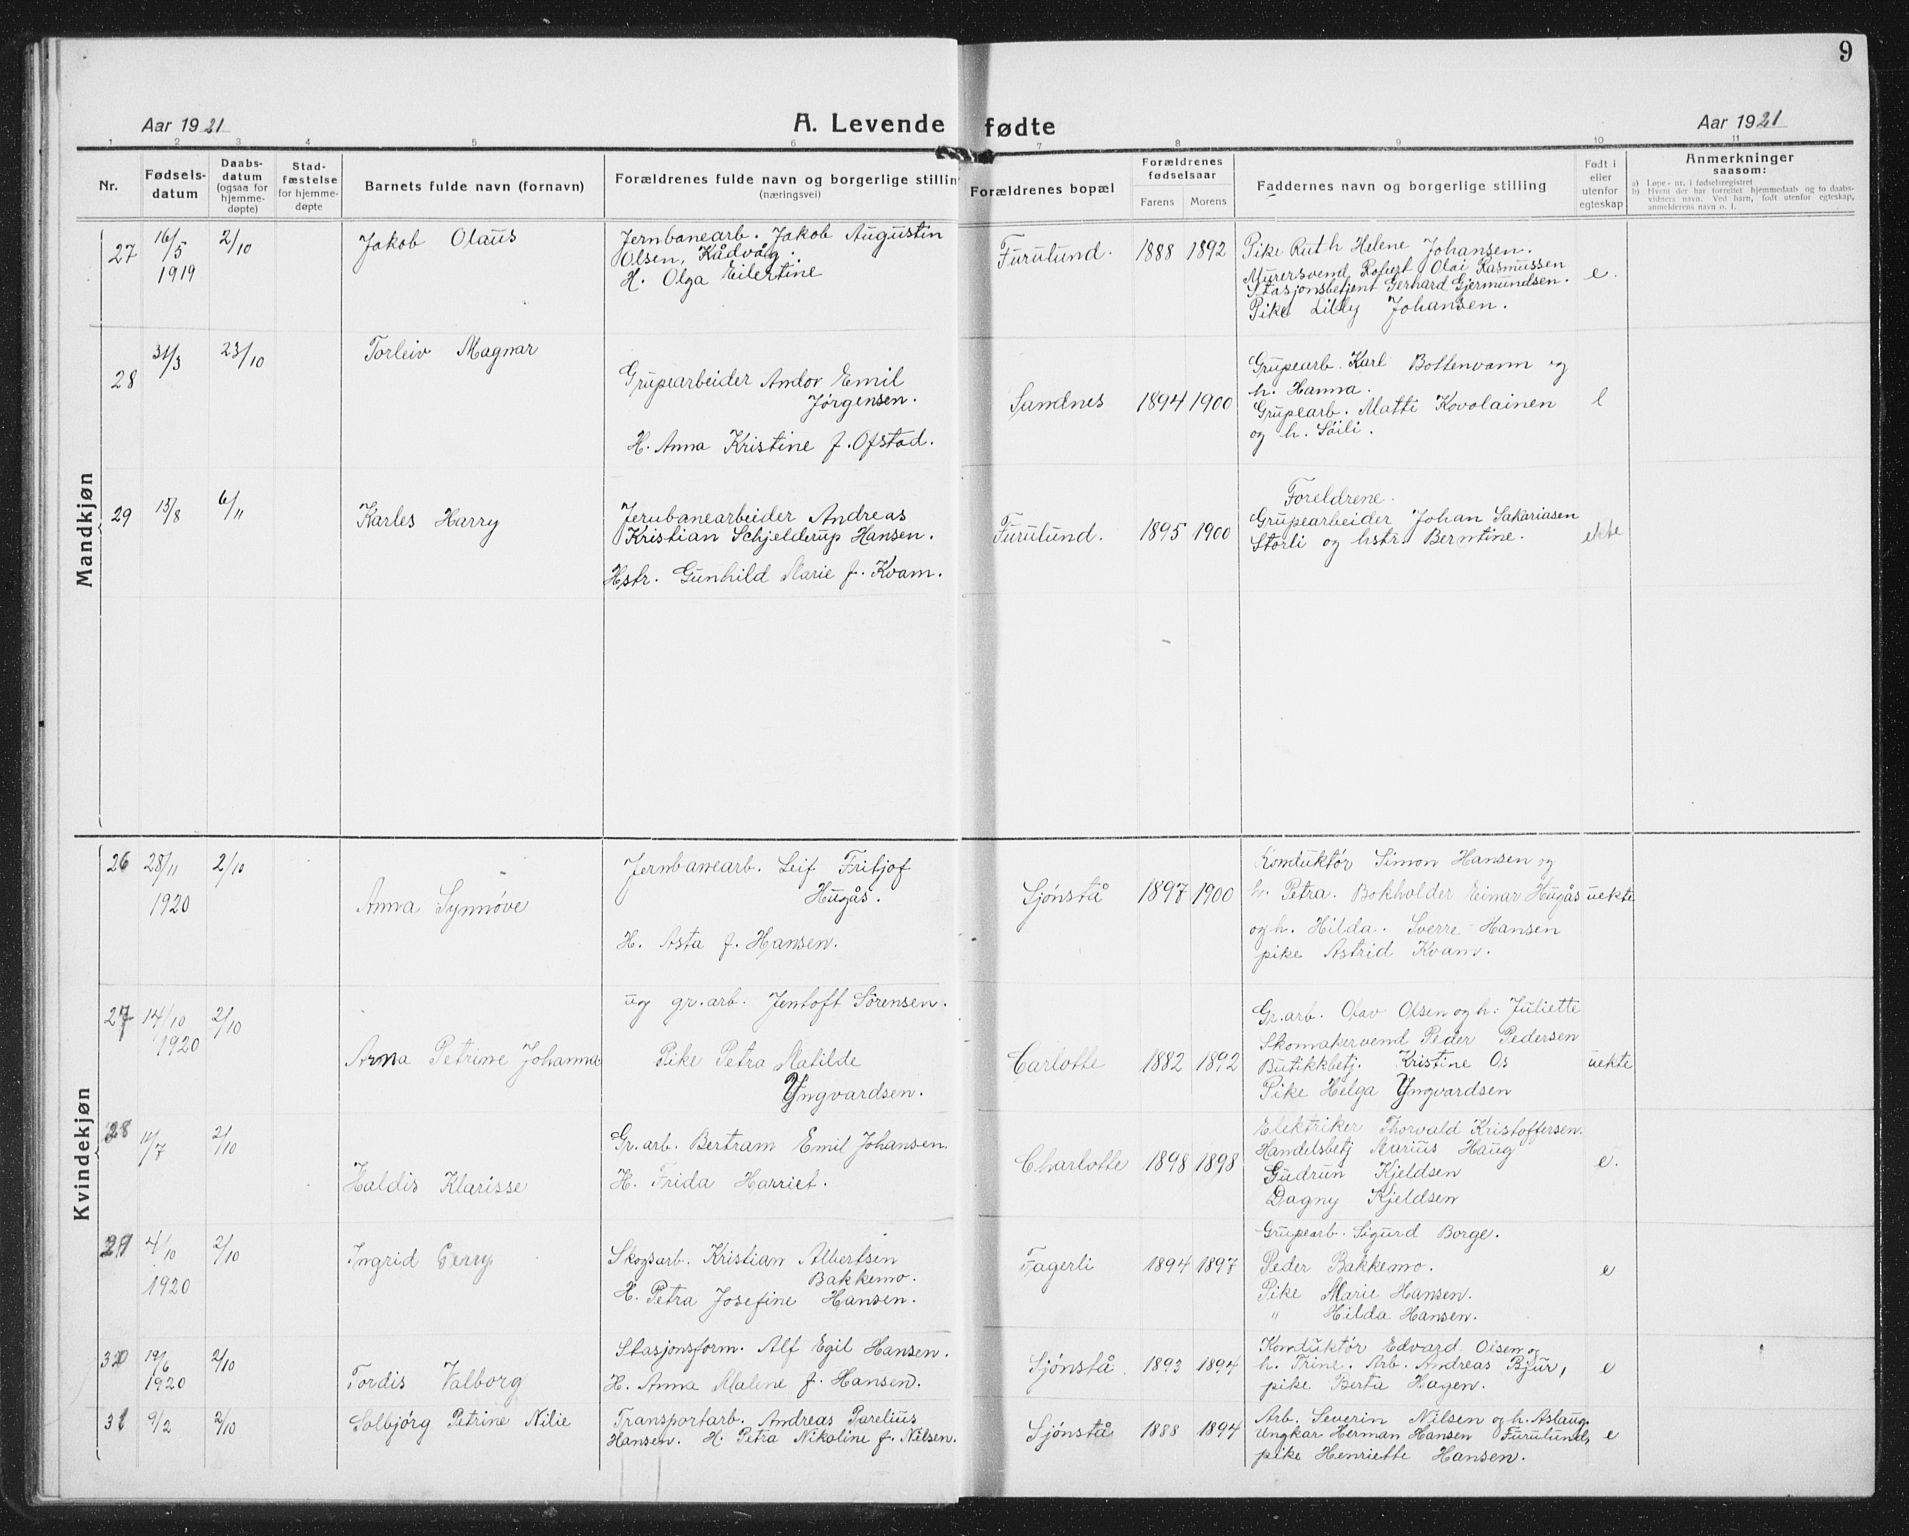 9
Aar 1921
A. Levende fødte
Aar 1921
1 2 3 4 5 6 7 8 9 10 11
Nr.
Fødsels-
datum
Daabs-
datum
(ogsaa for
hjemme-
døpte)
Stad-
fæstelse
for hjemme-
døpte
Barnets fulde navn (fornavn)
Forældrenes fulde navn og borgerlige stilling
(næringsvei)
Forældrenes bopæl
Forældrenes
fødselsaar
Farens Morens
Faddernes navn og borgerlige stilling
Født i
eller
utenfor
egteskap
Anmerkninger
saasom:
a) Løpe-nr. i fødselsregistret
b) Hvem der har forrettet hjemmedaab og to daabs-
vidners navn. Ved barn, født utenfor egteskap,
anmelderens navn o. l.
Mandkjøn
27
16/5
1919
2/10
Jakob Olaus
Jernbanearb. Jakob Augustin
Olsen, Kådvåg.
H. Olga Eilertine
Furulund.
1888 1892
Pike Ruth Helene Johansen.
Murersvend Robert Olai Rasmussen
Stasjonsbetjent Gerhard Gjermundsen.
Pike Lilly Johansen.
e.
28
31/3
23/10
Torleiv Magnar
Grupearbeider Andor Emil
Jørgensen.
H. Anna Kristine f. Ofstad.
Sandnes
1894 1900
Grupearb. Karl Bottenvann og
h. Hanna.
Grupearb. Matti Kovolainen
og h. Säili.
e
29
15/8
6/11
Karles Harry
Jernbanearbeider Andreas
Kristian Schjelderup Hansen.
Hstr. Gunhild Marie f. Kvam.
Furulund.
1895 1900
Foreldrene.
Grupearbeider Johan Sakariasen
Storli og hstr. Berntine.
ekte
Kvindekjøn
26
28/11
1920
2/10
Anna Synnøve
Jernbanearb. Leif Fritjof
Hugås.
H. Asta f. Hansen.
Sjønstå
1897 1900
Konduktør Simon Hansen og
h. Petra. Bokholder Einar Hugås
og h. Hilda. Sverre Hansen
pike Astrid Kvam.
uekte
27
14/10
1920
2/10
Arna Petrine Johanna
ug gr.arb. Jentoft Sørensen.
Pike Petra Matilde
Yngvardsen.
Carlotte
1882 1892
Gr.arb. Olav Olsen og h: Juliette
Skomakervend Peder Pedersen
Butikkbetj. Kristine Os
Pike Helga Yngvardsen
uekte
28
11/7
2/10
Haldis Klarisse
Gr.arb. Bertram Emil Johansen.
H. Frida Harriet.
Charlotte
1898 1898
Elektriker Thorvald Kristoffersen.
Handelsbetj Marius Haug
Gudrun Kjeldsen
Dagny Kjeldsen
e.
29
4/10
1920
2/10
Ingrid Gerry
Skogsarb. Kristian Albertsen
Bakkemo.
H. Petra Josefine Hansen.
Fagerli
1894 1897
Grupearb. Sigurd Borge.
Peder Bakkemo.
Pike Marie Hansen.
" Hilda Hansen.
e
30
19/6
1920
2/10
Tordis Valborg
Stasjonsform. Alf Egil Hansen.
H. Anna Malene f. Hansen.
Sjønstå.
1893 1894
Konduktør Edvard Olsen og
h. Trine. Arb. Andreas Bjur,
pike Berta Hagen.
e
31
9/2
2/10
Solbjørg Petrine Nilie
Transportarb. Andreas Parelius
Hansen. H. Petra Nikoline f. Nilsen.
Sjønstå
1888 1894
Arb. Severin Nilsen og h. Aslaug.
Ungkar Herman Hansen Furulund,
pike Henriette Hansen.
e